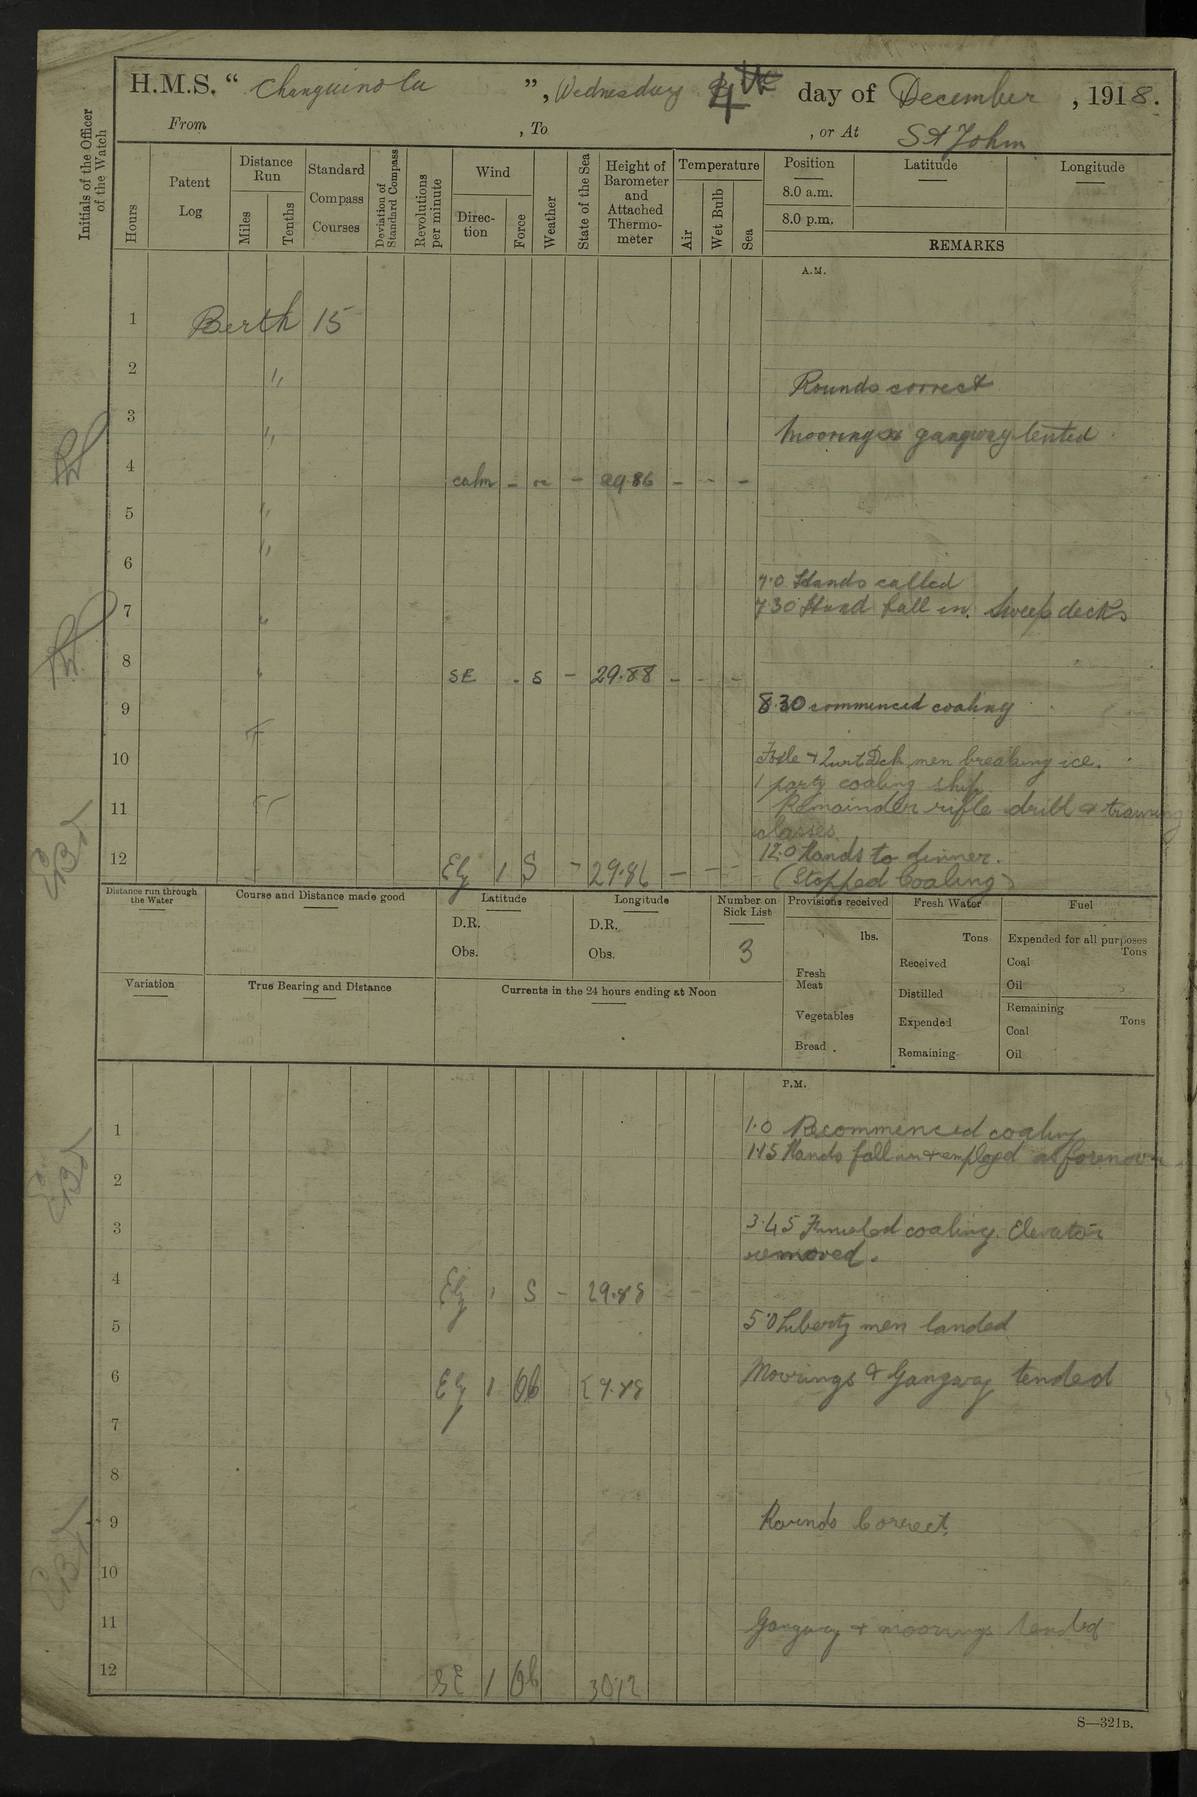 H.M.S. “ Changuinola ”, Wednesday 4th day of December, 1918.
From , To , or At St John
Initials of the Officer of the Watch
Hours
Patent Log
Distance Run
Miles
Tenths
Standard Compass Courses
Deviation of Standard Compass
Revolutions per minute
Wind
Direction
Force
Weather
State of the Sea
Height of Barometer and Attached Thermometer
Temperature
Air
Wet Bulb
Sea
Position
8.0 a.m.
8.0 p.m.
Latitude
Longitude
REMARKS
A.M.
1 Berth 15
2 " Rounds correct
3 " Moorings & gangway tented
4 calm - - 29.86 - - -
5 "
6 "
7.0 Hands called
7 " 7.30 Hand fall in. Sweep decks
8 " SE . S - 29.88 - - -
9 8.30 commenced coaling
10 Fxle & Qurt Dck men breaking ice.
1 party coaling ship
11 Remainder rifle drill & training
classes.
12.0 Hands to dinner.
12 Ely 1 S - 29.86 - - - (Stopped Coaling)
Distance run through the Water
Course and Distance made good
Latitude
D.R.
Obs.
Longitude
D.R.
Obs.
Number on Sick List
3
Provisions received
lbs.
Fresh Meat
Vegetables
Bread
Fresh Water
Tons
Received
Distilled
Expended
Remaining
Fuel
Expended for all purposes
Tons
Coal
Oil
Remaining
Tons
Coal
Oil
Variation
True Bearing and Distance
Currents in the 24 hours ending at Noon
P.M.
1 1.0 Recommenced coaling
1.15 Hands fall in & employed as forenoon
2
3 3.45 Finished coaling. Elevator
removed.
4 Ely 1 S - 29.88 - -
5 5.0 Liberty men landed
6 Ely 1 Ob 29.88 Moorings & Gangway tended
7
8
9 Rounds Correct.
10
11 Gangway & moorings tended
12 SE 1 Ob 30.12
S—321B.